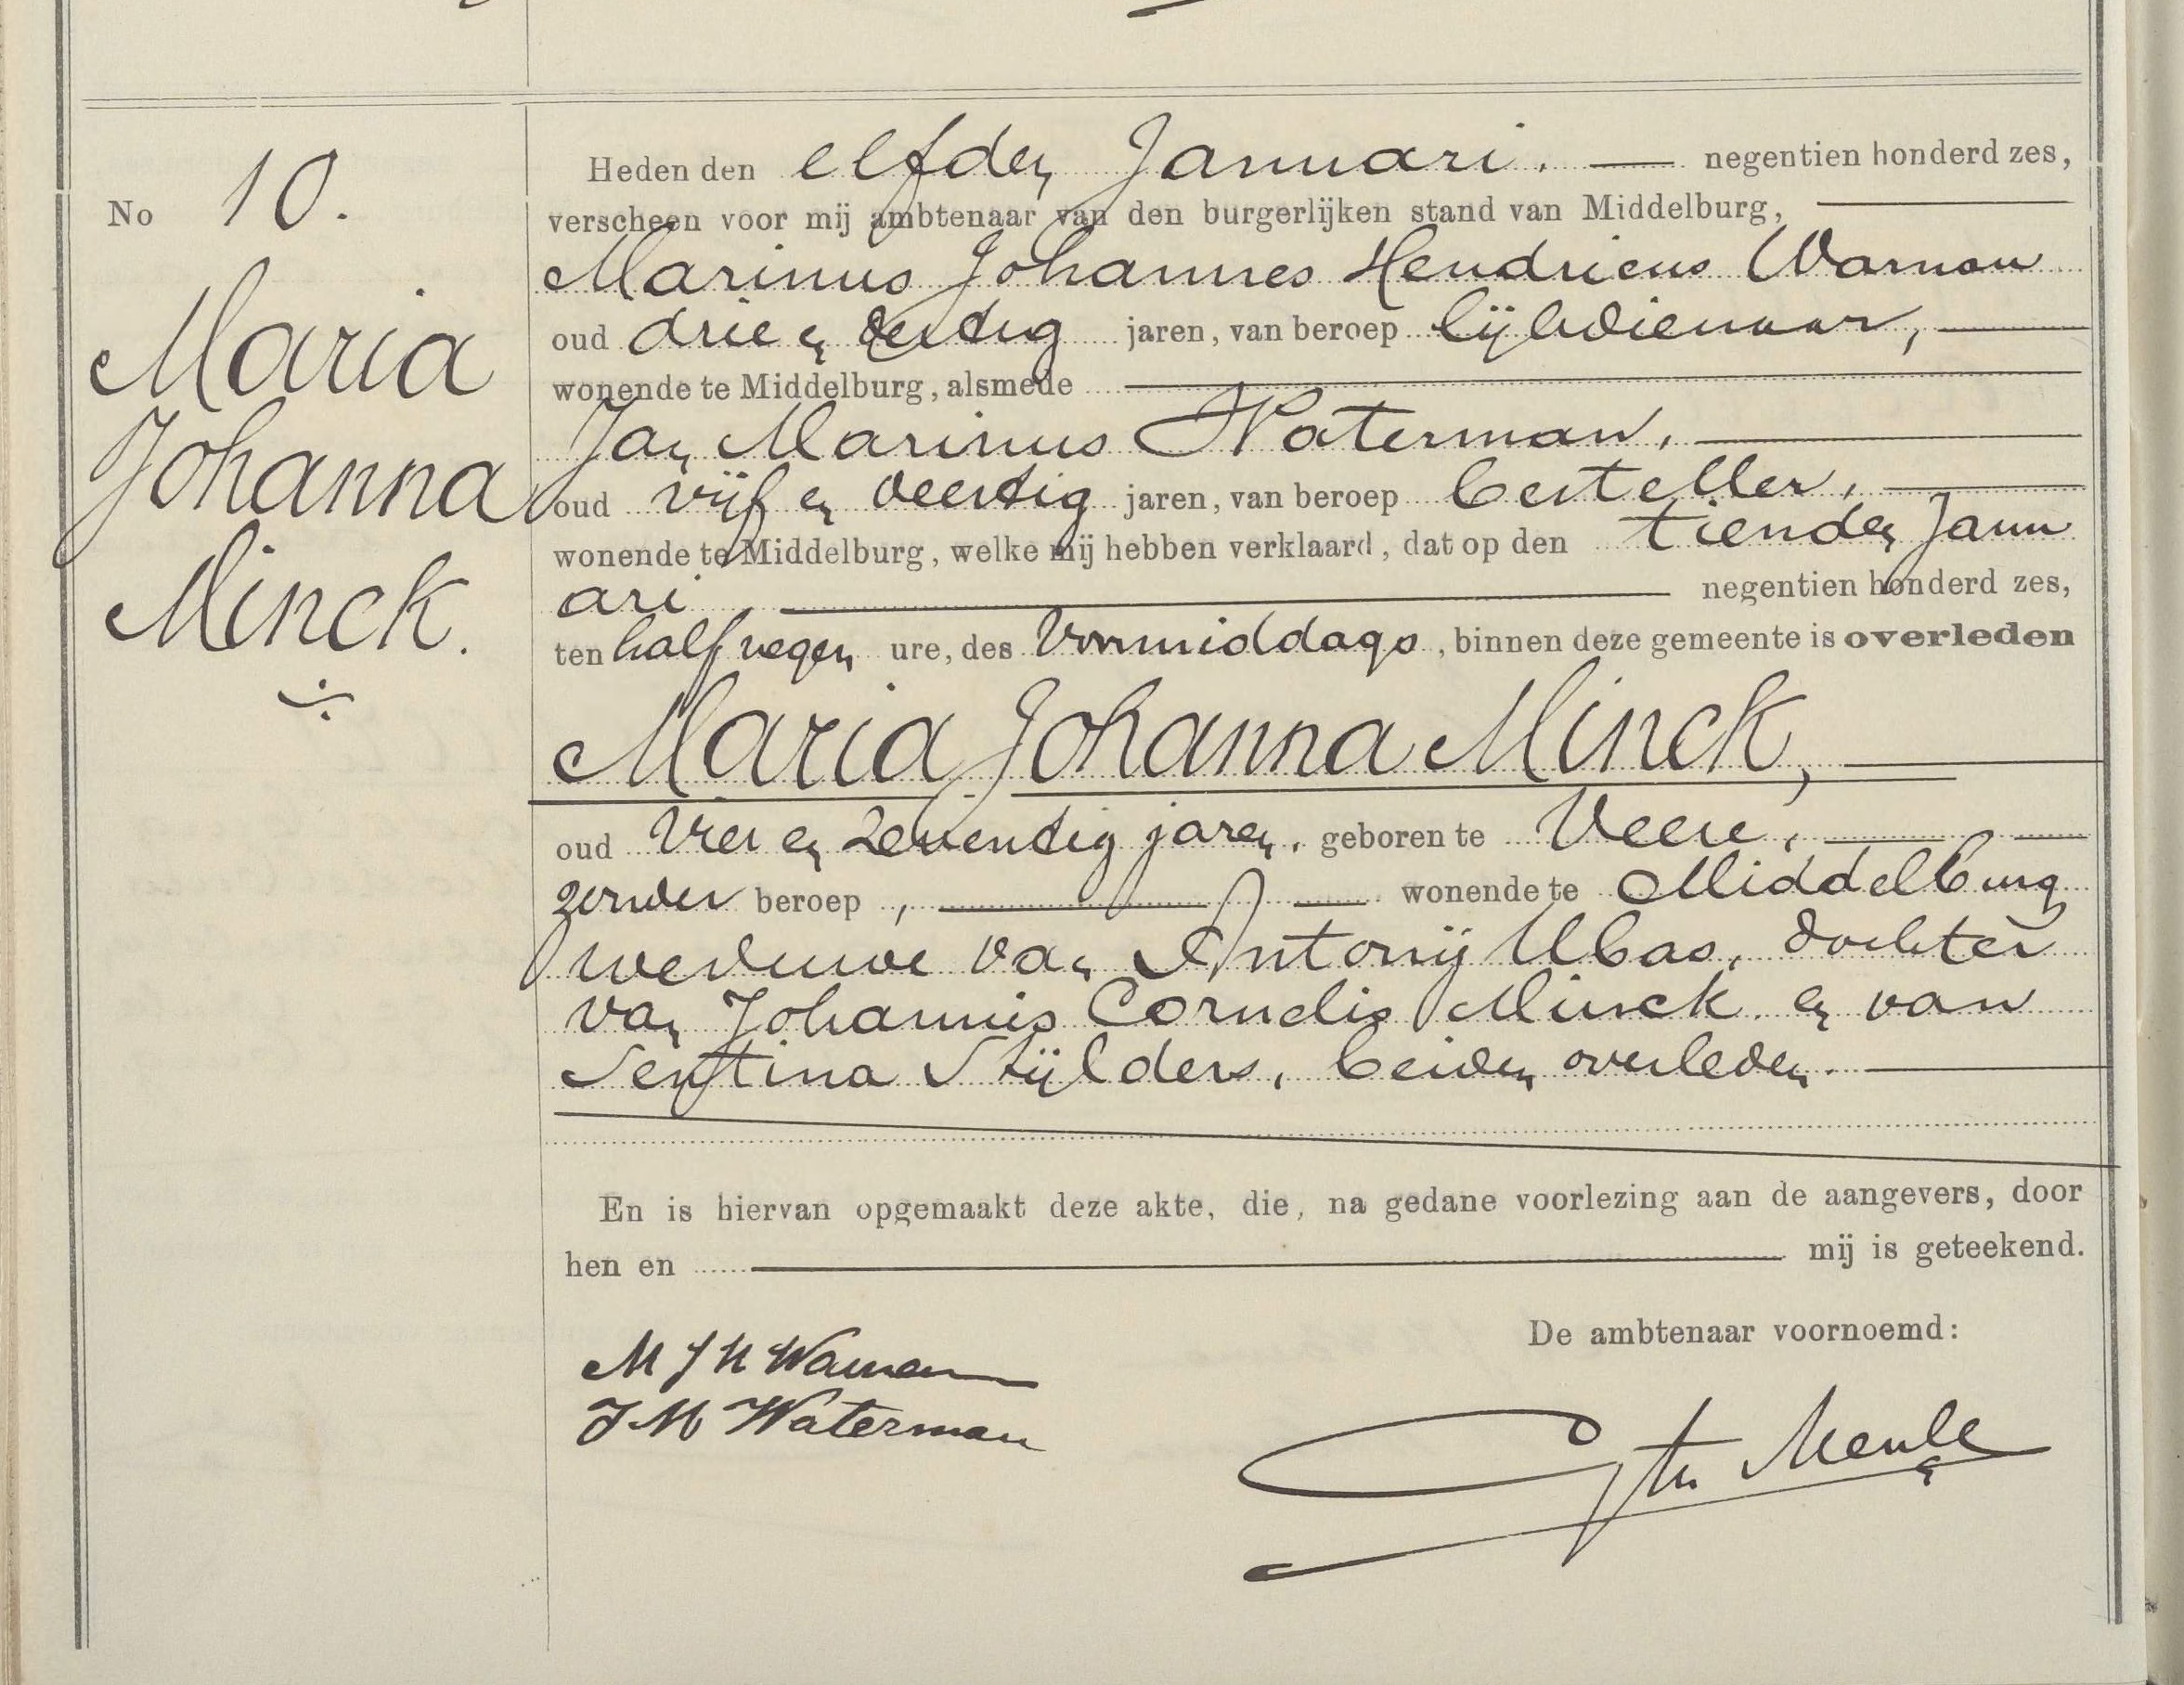 No 10.
Maria
Johanna
Minck.
Heden den elfden Januari. negentien honderd zes,
verscheen voor mij ambtenaar van den burgerlijken stand van Middelburg,
Marinus Johannes Hendricus Warnan
oud drie en dertig jaren, van beroep lijkdienaar,
wonende te Middelburg, alsmede
Jan Marinus Waterman,
oud vijf en veertig jaren, van beroep besteller,
wonende te Middelburg, welke mij hebben verklaard, dat op den tienden Janu
ari negentien honderd zes,
ten half negen ure, des Voormiddags, binnen deze gemeente is overleden
Maria Johanna Minck,
oud Vier en zeventig jaren, geboren te Veere,
zonder beroep, wonende te Middelburg
weduwe van Antonij Ubas, dochter
van Johannis Cornelis Minck en van
Sentina Stijlders, beiden overleden.
En is hiervan opgemaakt deze akte, die, na gedane voorlezing aan de aangevers, door
hen en mij is geteekend.
De ambtenaar voornoemd:
M J H Warnan
J M Waterman